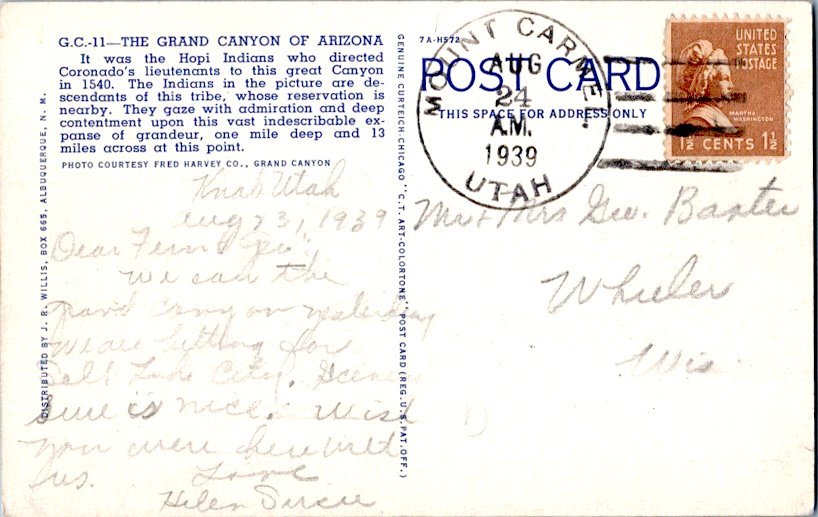 G.C.-11—THE GRAND CANYON OF ARIZONA
It was the Hopi Indians who directed
Coronado's lieutenants to this great Canyon
in 1540. The Indians in the picture are de-
scendants of this tribe, whose reservation is
nearby. They gaze with admiration and deep
contentment upon this vast indescribable ex-
panse of grandeur, one mile deep and 13
miles across at this point.
PHOTO COURTESY FRED HARVEY CO., GRAND CANYON
Knab Utah
Aug 23, 1939
Dear Fern & Geo.,
We saw the
grand canyon yesterday
We are hitting for
Salt Lake City. Scenery
sure is nice. Wish
you were here with
us. Love
Helen
DISTRIBUTED BY J. R. WILLIS, BOX 665, ALBUQUERQUE, N. M.
GENUINE CURTEICH-CHICAGO "C.T. ART-COLORTONE" POST CARD (REG. U.S. PAT. OFF.)
7A-H572
POST CARD
THIS SPACE FOR ADDRESS ONLY
MOUNT CARMEL.
AUG
24
A.M.
1939
UTAH
UNITED
STATES
POSTAGE
MARTHA
WASHINGTON
1½ CENTS 1½
Mr & Mrs Geo. Baxter
Wheeler
Wis